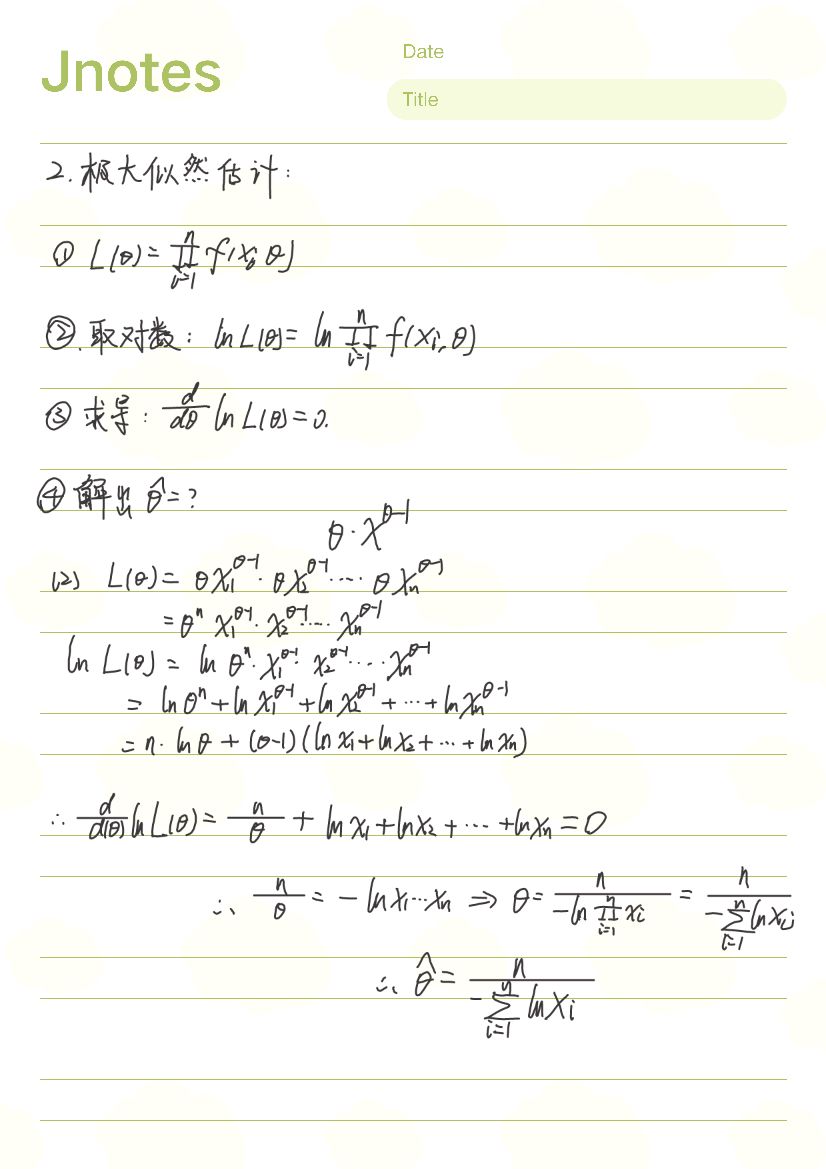 Jnotes
Date
Title
2. 极大似然估计:
① L(θ) = ∏_{i=1}^{n} f(x_i, θ)
②. 取对数: ln L(θ) = ln ∏_{i=1}^{n} f(x_i, θ)
③ 求导: d/dθ ln L(θ) = 0.
④ 解出 θ̂ = ?
θ · x^{θ-1}
(2) L(θ) = θx₁^{θ-1} · θx₂^{θ-1} ····· θx_n^{θ-1}
= θ^n x₁^{θ-1} · x₂^{θ-1} ····· x_n^{θ-1}
ln L(θ) = ln θ^n · x₁^{θ-1} · x₂^{θ-1} ····· x_n^{θ-1}
= ln θ^n + ln x₁^{θ-1} + ln x₂^{θ-1} + ··· + ln x_n^{θ-1}
= n · ln θ + (θ-1)(ln x₁ + ln x₂ + ··· + ln x_n)
∴ d/d(θ) ln L(θ) = n/θ + ln x₁ + ln x₂ + ··· + ln x_n = 0
∴ n/θ = - ln x₁ ··· x_n ⇒ θ = n/(-ln ∏_{i=1}^{n} x_i) = n/(-∑_{i=1}^{n} ln x_i)
∴ θ̂ = n/(-∑_{i=1}^{n} ln X_i)